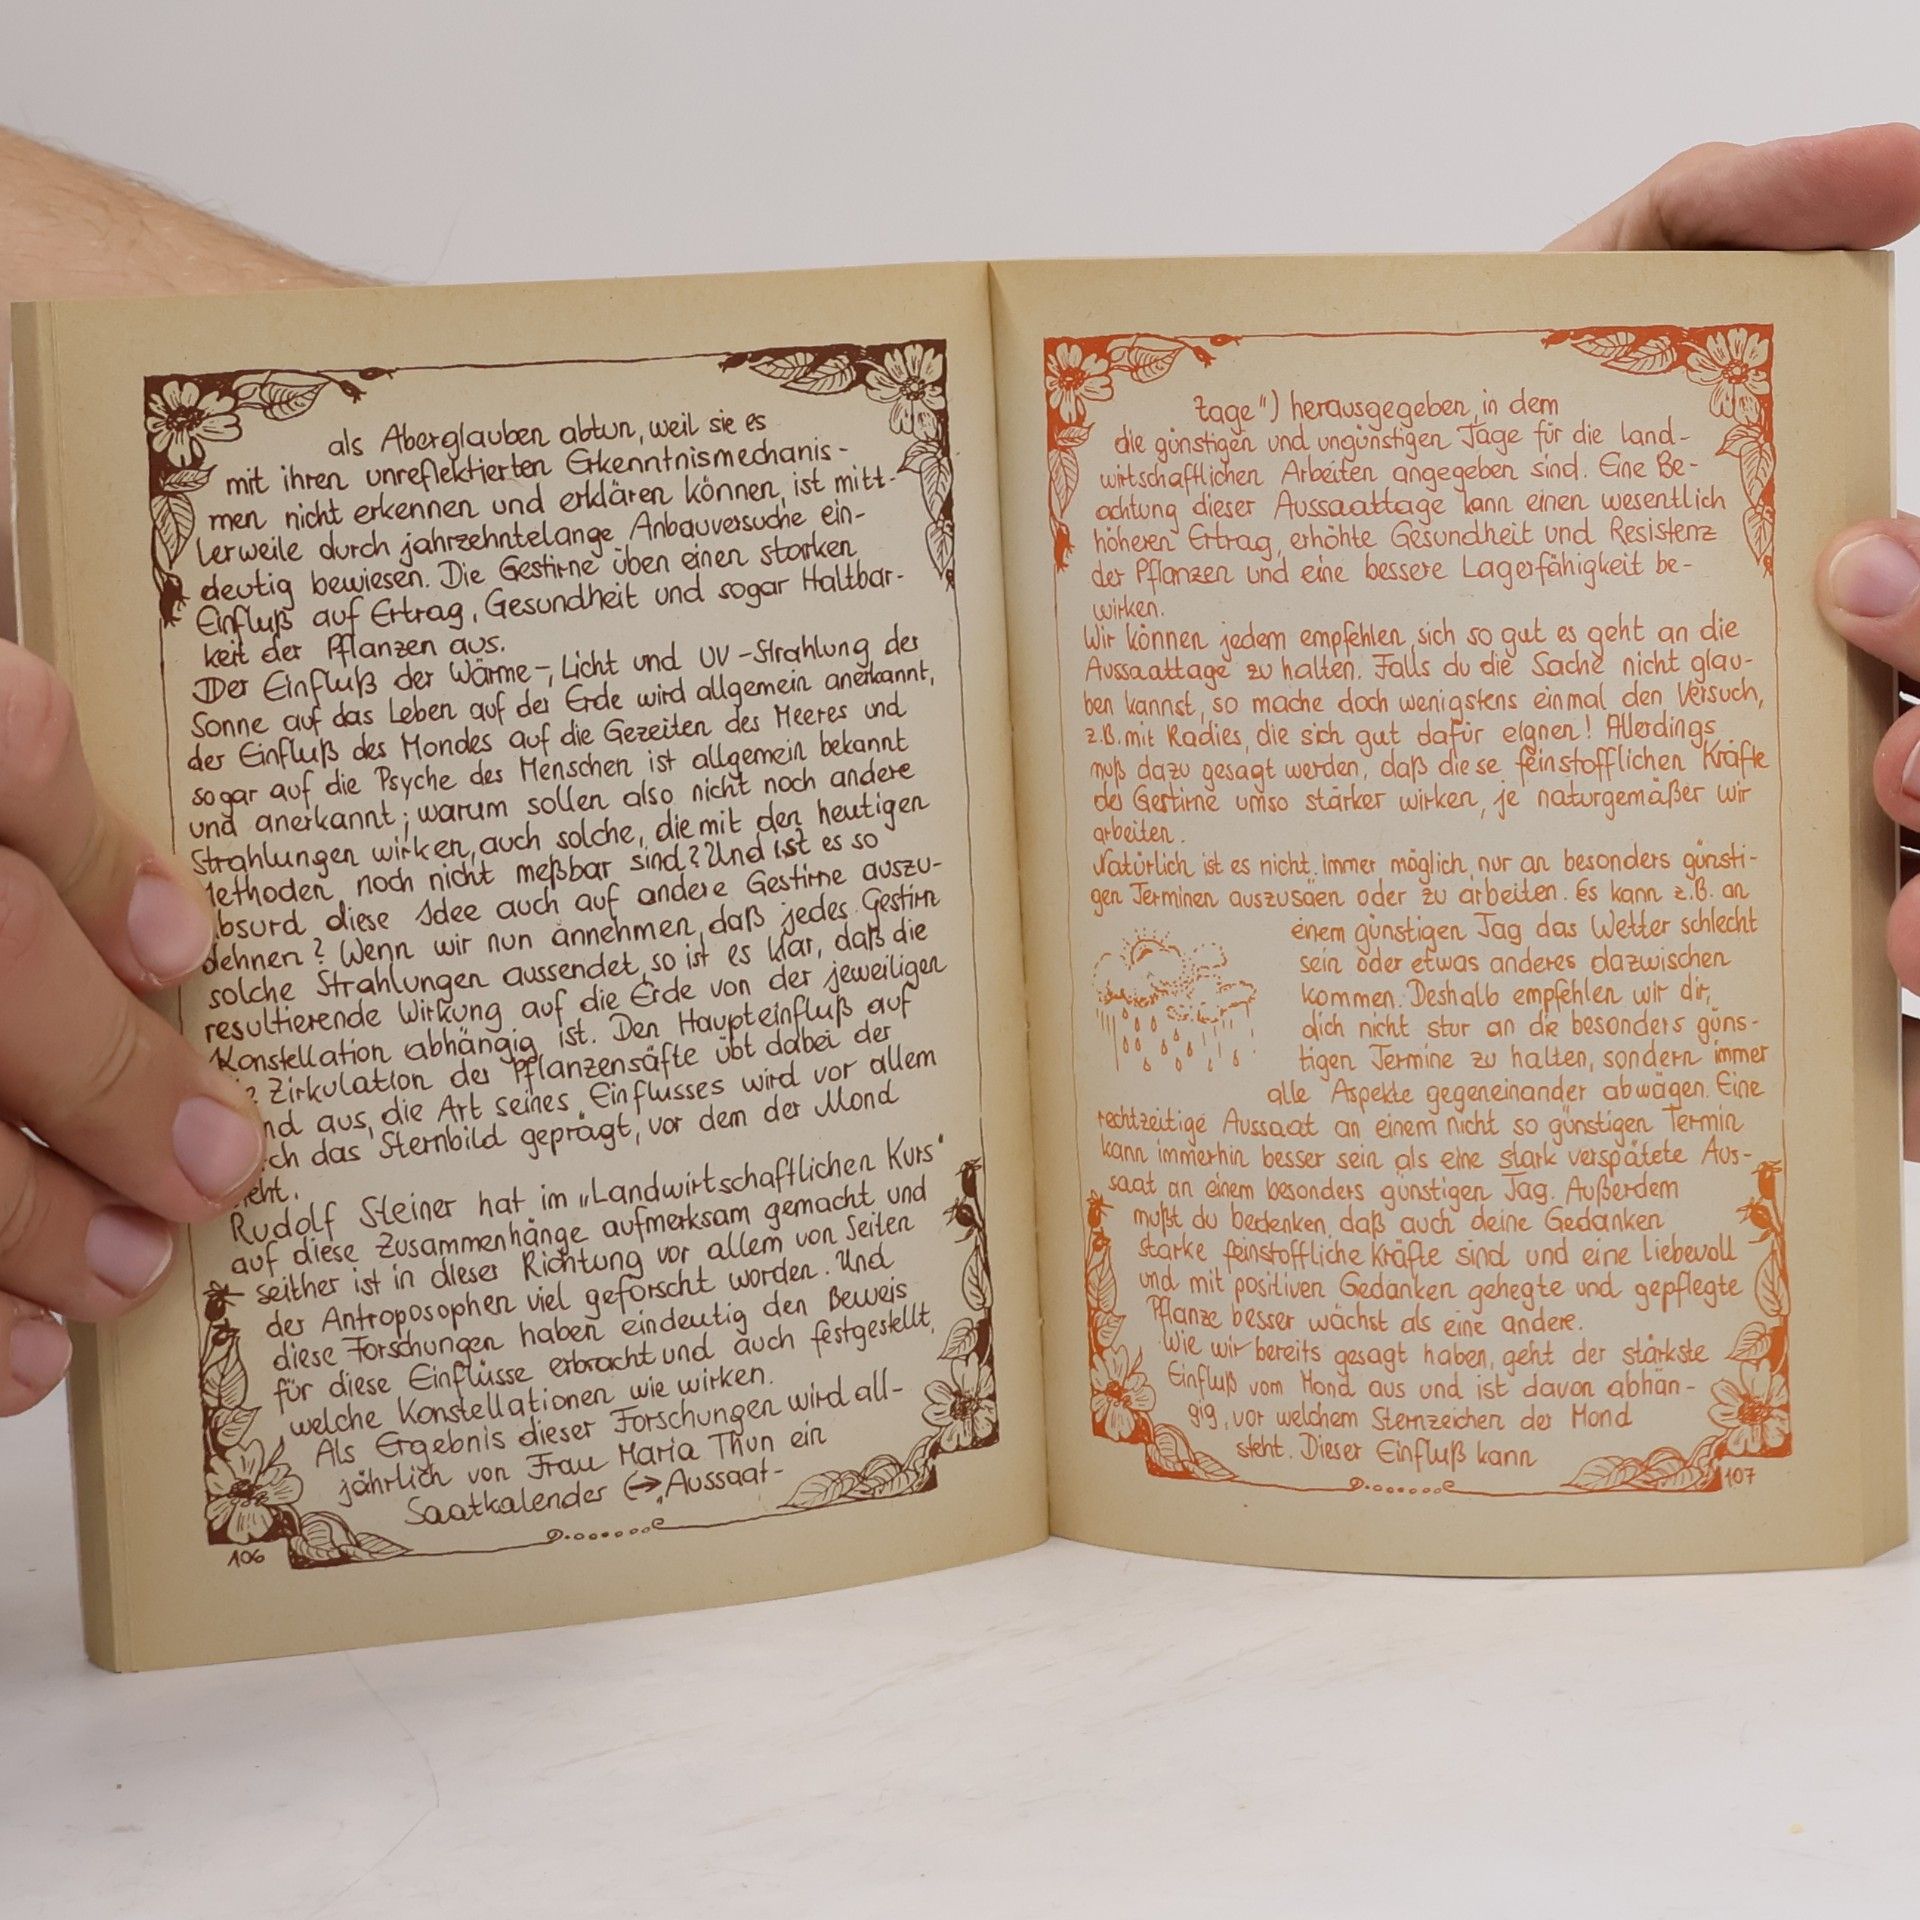 als Aberglauben abtun, weil sie es
mit ihren unreflektierten Erkenntnismechanis-
men nicht erkennen und erklären können, ist mitt-
lerweile durch jahrzehntelange Anbauversuche ein-
deutig bewiesen. Die Gestirne üben einen starken
Einfluß auf Ertrag, Gesundheit und sogar Haltbar-
keit der Pflanzen aus.
Der Einfluß der Wärme-, Licht und UV-Strahlung der
Sonne auf das Leben auf der Erde wird allgemein anerkannt,
der Einfluß des Mondes auf die Gezeiten des Meeres und
sogar auf die Psyche des Menschen ist allgemein bekannt
und anerkannt; warum sollen also nicht noch andere
Strahlungen wirken, auch solche, die mit den heutigen
Methoden noch nicht meßbar sind? Und ist es so
absurd diese Idee auch auf andere Gestirne auszu-
dehnen? Wenn wir nun annehmen, daß jedes Gestirn
solche Strahlungen aussendet, so ist es klar, daß die
resultierende Wirkung auf die Erde von der jeweiligen
Konstellation abhängig ist. Den Haupteinfluß auf
Zirkulation der Pflanzensäfte übt dabei der
aus, die Art seines Einflusses wird vor allem
das Sternbild geprägt, vor dem der Mond
Rudolf Steiner hat im „Landwirtschaftlichen Kurs“
auf diese Zusammenhänge aufmerksam gemacht und
seither ist in dieser Richtung vor allem von Seiten
der Antroposophen viel geforscht worden. Und
diese Forschungen haben eindeutig den Beweis
für diese Einflüsse erbracht und auch festgestellt,
welche Konstellationen wie wirken.
Als Ergebnis dieser Forschungen wird all-
jährlich von Frau Maria Thun ein
Saatkalender (→ „Aussaat-
106
tage") herausgegeben, in dem
die günstigen und ungünstigen Tage für die land-
wirtschaftlichen Arbeiten angegeben sind. Eine Be-
achtung dieser Aussaattage kann einen wesentlich
höheren Ertrag, erhöhte Gesundheit und Resistenz
der Pflanzen und eine bessere Lagerfähigkeit be-
wirken.
Wir können jedem empfehlen, sich so gut es geht an die
Aussaattage zu halten. Falls du die Sache nicht glau-
ben kannst, so mache doch wenigstens einmal den Versuch,
z.B. mit Radies, die sich gut dafür eignen! Allerdings
muß dazu gesagt werden, daß diese feinstofflichen Kräfte
der Gestirne umso stärker wirken, je naturgemäßer wir
arbeiten.
Natürlich ist es nicht immer möglich, nur an besonders günsti-
gen Terminen auszusäen oder zu arbeiten. Es kann z.B. an
einem günstigen Tag das Wetter schlecht
sein oder etwas anderes dazwischen
kommen. Deshalb empfehlen wir dir,
dich nicht stur an die besonders güns-
tigen Termine zu halten, sondern immer
alle Aspekte gegeneinander abwägen. Eine
rechtzeitige Aussaat an einem nicht so günstigen Termin
kann immerhin besser sein als eine stark verspätete Aus-
saat an einem besonders günstigen Tag. Außerdem
mußt du bedenken, daß auch deine Gedanken
starke feinstoffliche Kräfte sind und eine liebevoll
und mit positiven Gedanken gehegte und gepflegte
Pflanze besser wächst als eine andere.
Wie wir bereits gesagt haben, geht der stärkste
Einfluß vom Mond aus und ist davon abhän-
gig, vor welchem Sternzeichen der Mond
steht. Dieser Einfluß kann
107